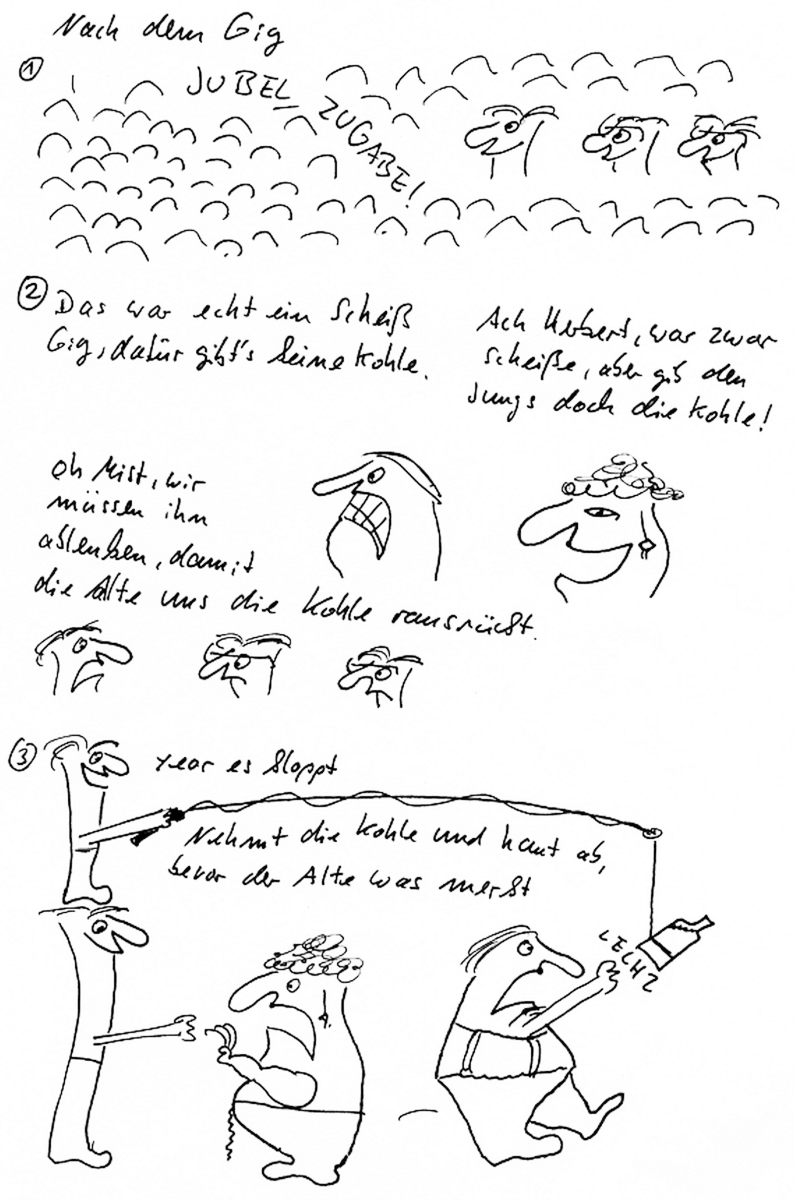 Nach dem Gig
1
JUBEL, ZUGABE!
2
Das war echt ein Scheiß
Gig, dafür gibt's keine Kohle.
Ach Herbert, war zwar
scheiße, aber gib den
Jungs doch die Kohle!
Oh Mist, wir
müssen ihn
ablenken, damit
die Alte uns die Kohle rausrückt.
3
Year es kloppt
Nehmt die Kohle und haut ab,
bevor der Alte was merkt
LECHZ